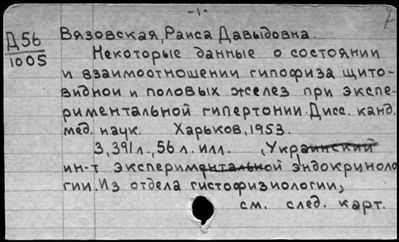 -1-
Д56
1005
Вязовская, Раиса Давыдовна.
Некоторые данные о состоянии
и взаимоотношении гипофиза щито-
видной и половых желез при экспе-
риментальной гипертонии. Дисс. канд.
мед. наук. Харьков, 1953.
3, 391 л., 56 л. илл. , Украинский
ин-т экспериментальной эндокриноло
гии. Из отдела гистофизиологии,
см. след. карт.